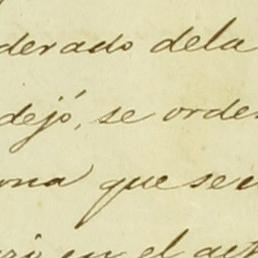 derado dela
dejó, se orde
ona que se
en el